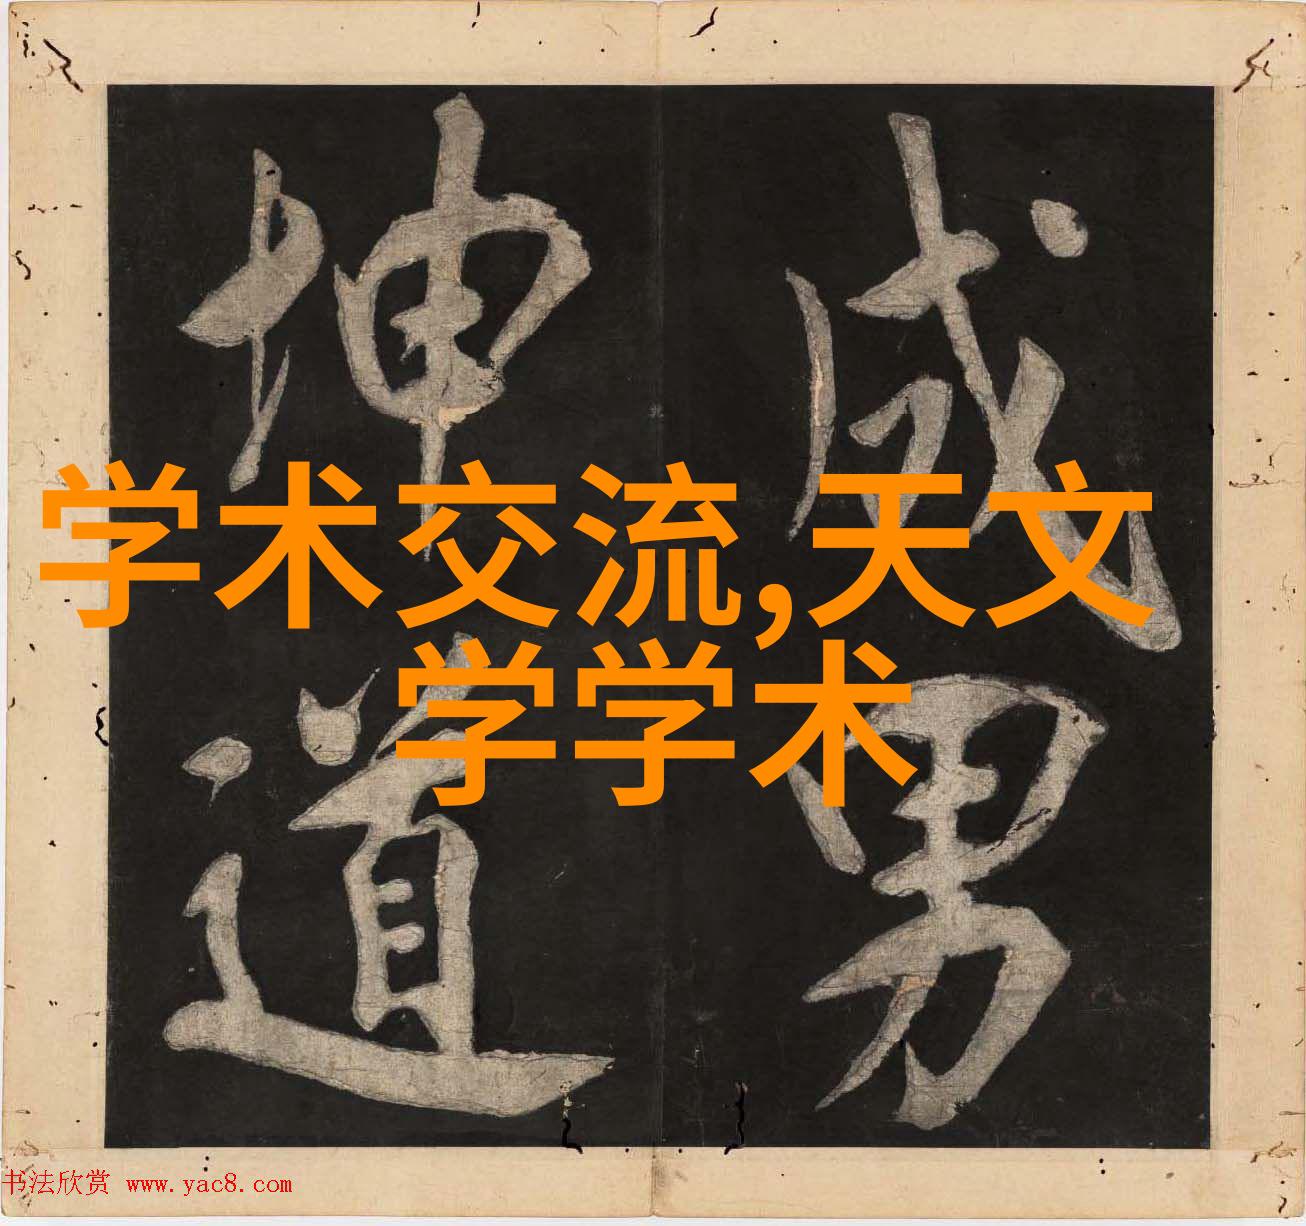 成男
坤道
学术交流,天文
学学术
书法欣赏 www.yac8.com